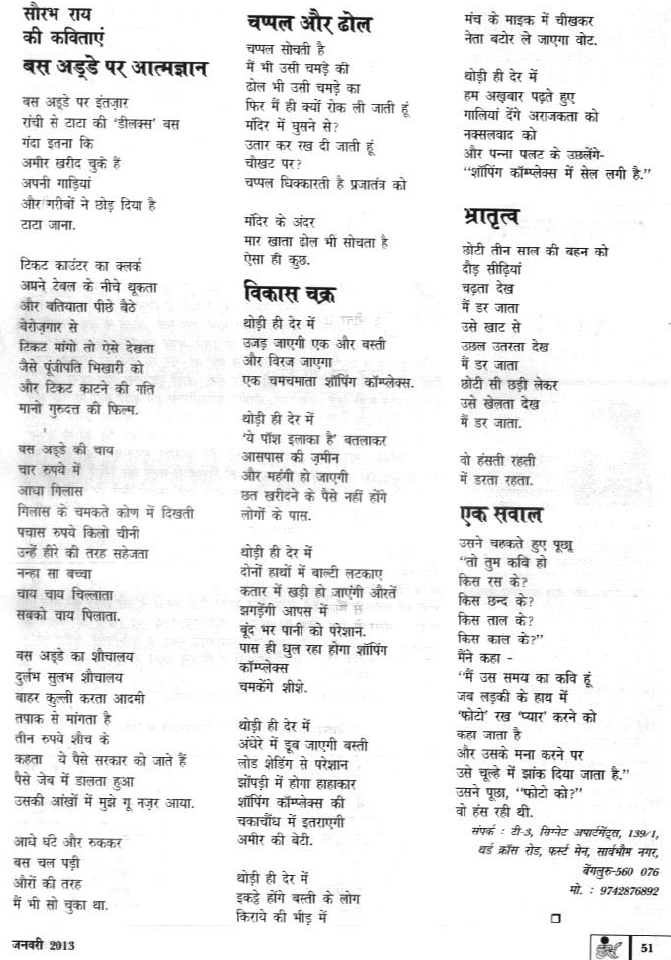 सौरभ राय
की कविताएं
बस अड्डे पर आत्मज्ञान
बस अड्डे पर इंतज़ार
रांची से टाटा की 'डीलक्स' बस
गंदा इतना कि
अमीर खरीद चुके हैं
अपनी गाड़ियां
और गरीबों ने छोड़ दिया है
टाटा जाना.
टिकट काउंटर का क्लर्क
अपने टेबल के नीचे थूकता
और बतियाता पीछे बैठे
बेरोज़गार से
टिकट मांगो तो ऐसे देखता
जैसे पूंजीपति भिखारी को
और टिकट काटने की गति
मानो गुरुदत्त की फिल्म.
बस अड्डे की चाय
चार रुपये में
आधा गिलास
गिलास के चमकते कोण में दिखती
पचास रुपये किलो चीनी
उन्हें हीरे की तरह सहेजता
नन्हा सा बच्चा
चाय चाय चिल्लाता
सबको चाय पिलाता.
बस अड्डे का शौचालय
दुर्लभ सुलभ शौचालय
बाहर कुल्ली करता आदमी
तपाक से मांगता है
तीन रुपये शौच के
कहता ये पैसे सरकार को जाते हैं
पैसे जेब में डालता हुआ
उसकी आंखों में मुझे गू नज़र आया.
आधे घंटे और रुककर
बस चल पड़ी
औरों की तरह
मैं भी सो चुका था.
चप्पल और ढोल
चप्पल सोचती है
मैं भी उसी चमड़े की
ढोल भी उसी चमड़े का
फिर मैं ही क्यों रोक ली जाती हूं
मंदिर में घुसने से?
उतार कर रख दी जाती हूं
चौखट पर?
चप्पल धिक्कारती है प्रजातंत्र को
मंदिर के अंदर
मार खाता ढोल भी सोचता है
ऐसा ही कुछ.
विकास चक्र
थोड़ी ही देर में
उजड़ जाएगी एक और बस्ती
और विरज जाएगा
एक चमचमाता शॉपिंग कॉम्प्लेक्स.
थोड़ी ही देर में
'ये पॉश इलाका है' बतलाकर
आसपास की ज़मीन
और महंगी हो जाएगी
छत खरीदने के पैसे नहीं होंगे
लोगों के पास.
थोड़ी ही देर में
दोनों हाथों में बाल्टी लटकाए
कतार में खड़ी हो जाएंगी औरतें
झगड़ेंगी आपस में
बूंद भर पानी को परेशान.
पास ही धुल रहा होगा शॉपिंग
कॉम्प्लेक्स
चमकेंगे शीशे.
थोड़ी ही देर में
अंधेरे में डूब जाएगी बस्ती
लोड शेडिंग से परेशान
झोंपड़ी में होगा हाहाकार
शॉपिंग कॉम्प्लेक्स की
चकाचौंध में इतराएगी
अमीर की बेटी.
थोड़ी ही देर में
इकट्ठे होंगे बस्ती के लोग
किराये की भीड़ में
मंच के माइक में चीखकर
नेता बटोर ले जाएगा वोट.
थोड़ी ही देर में
हम अख़बार पढ़ते हुए
गालियां देंगे अराजकता को
नक्सलवाद को
और पन्ना पलट के उछलेंगे-
"शॉपिंग कॉम्प्लेक्स में सेल लगी है."
भ्रातृत्व
छोटी तीन साल की बहन को
दौड़ सीढ़ियां
चढ़ता देख
मैं डर जाता
उसे खाट से
उछल उतरता देख
मैं डर जाता
छोटी सी छड़ी लेकर
उसे खेलता देख
मैं डर जाता.
वो हंसती रहती
में डरता रहता.
एक सवाल
उसने चहकते हुए पूछा
"तो तुम कवि हो
किस रस के?
किस छन्द के?
किस ताल के?
किस काल के?"
मैंने कहा -
"मैं उस समय का कवि हूं
जब लड़की के हाथ में
'फोटो' रख 'प्यार' करने को
कहा जाता है
और उसके मना करने पर
उसे चूल्हे में झोंक दिया जाता है."
उसने पूछा, "फोटो को?"
वो हंस रही थी.
संपर्क : टी-3, सिग्नेट अपार्टमेंट्स, 139/1,
थर्ड क्रॉस रोड, फर्स्ट मेन, सार्वभौम नगर,
बेंगलुरु-560 076
मो. : 9742876892
जनवरी 2013
हंस
51